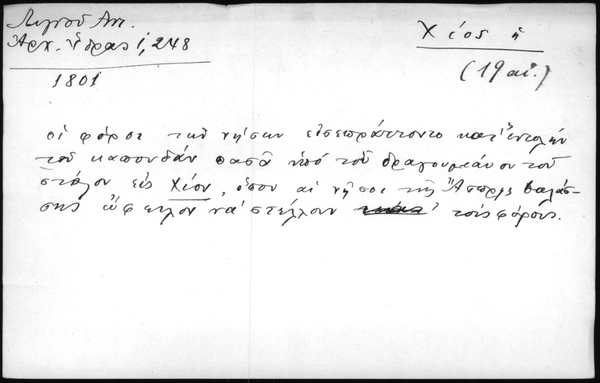 Λιγνοῦ Ἀντ.
Ἀρχ. Ὕδρας 1, 248
1801
Χίος ἡ
(19 αἰ.)
οἱ φόροι τῶν νήσων εἰσεπράττοντο κατ' ἐντολήν
τοῦ καπουδάν πασᾶ ὑπό τοῦ δραγουμάνου τοῦ
στόλου εἰς Χίον, ὅπου αἱ νῆσοι τῆς Ἄσπρης Θαλάσ-
σης ὤφειλον νά στέλλουν τούς φόρους.